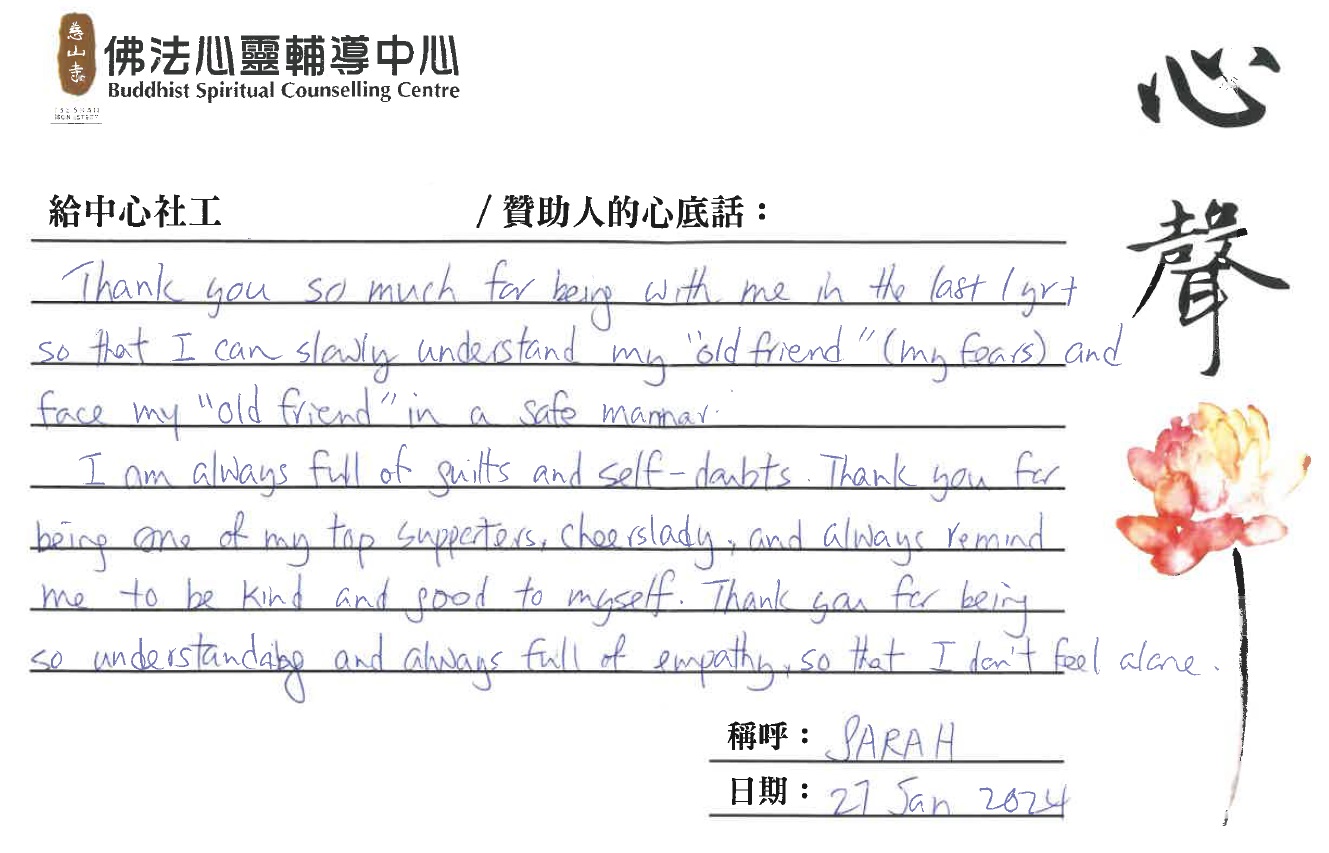 慈山寺
佛法心靈輔導中心
Buddhist Spiritual Counselling Centre
TSZ SHAN
MONASTERY
心聲
給中心社工 / 贊助人的心底話：
Thank you so much for being with me in the last 1 yr+
so that I can slowly understand my "old friend" (my fears) and
face my "old friend" in a safe mannar.
I am always full of guilts and self-doubts. Thank you for
being one of my top supporters, cheerslady, and always remind
me to be kind and good to myself. Thank you for being
so understanding and always full of empathy, so that I don't feel alone.
稱呼： SARAH
日期： 27 Jan 2024